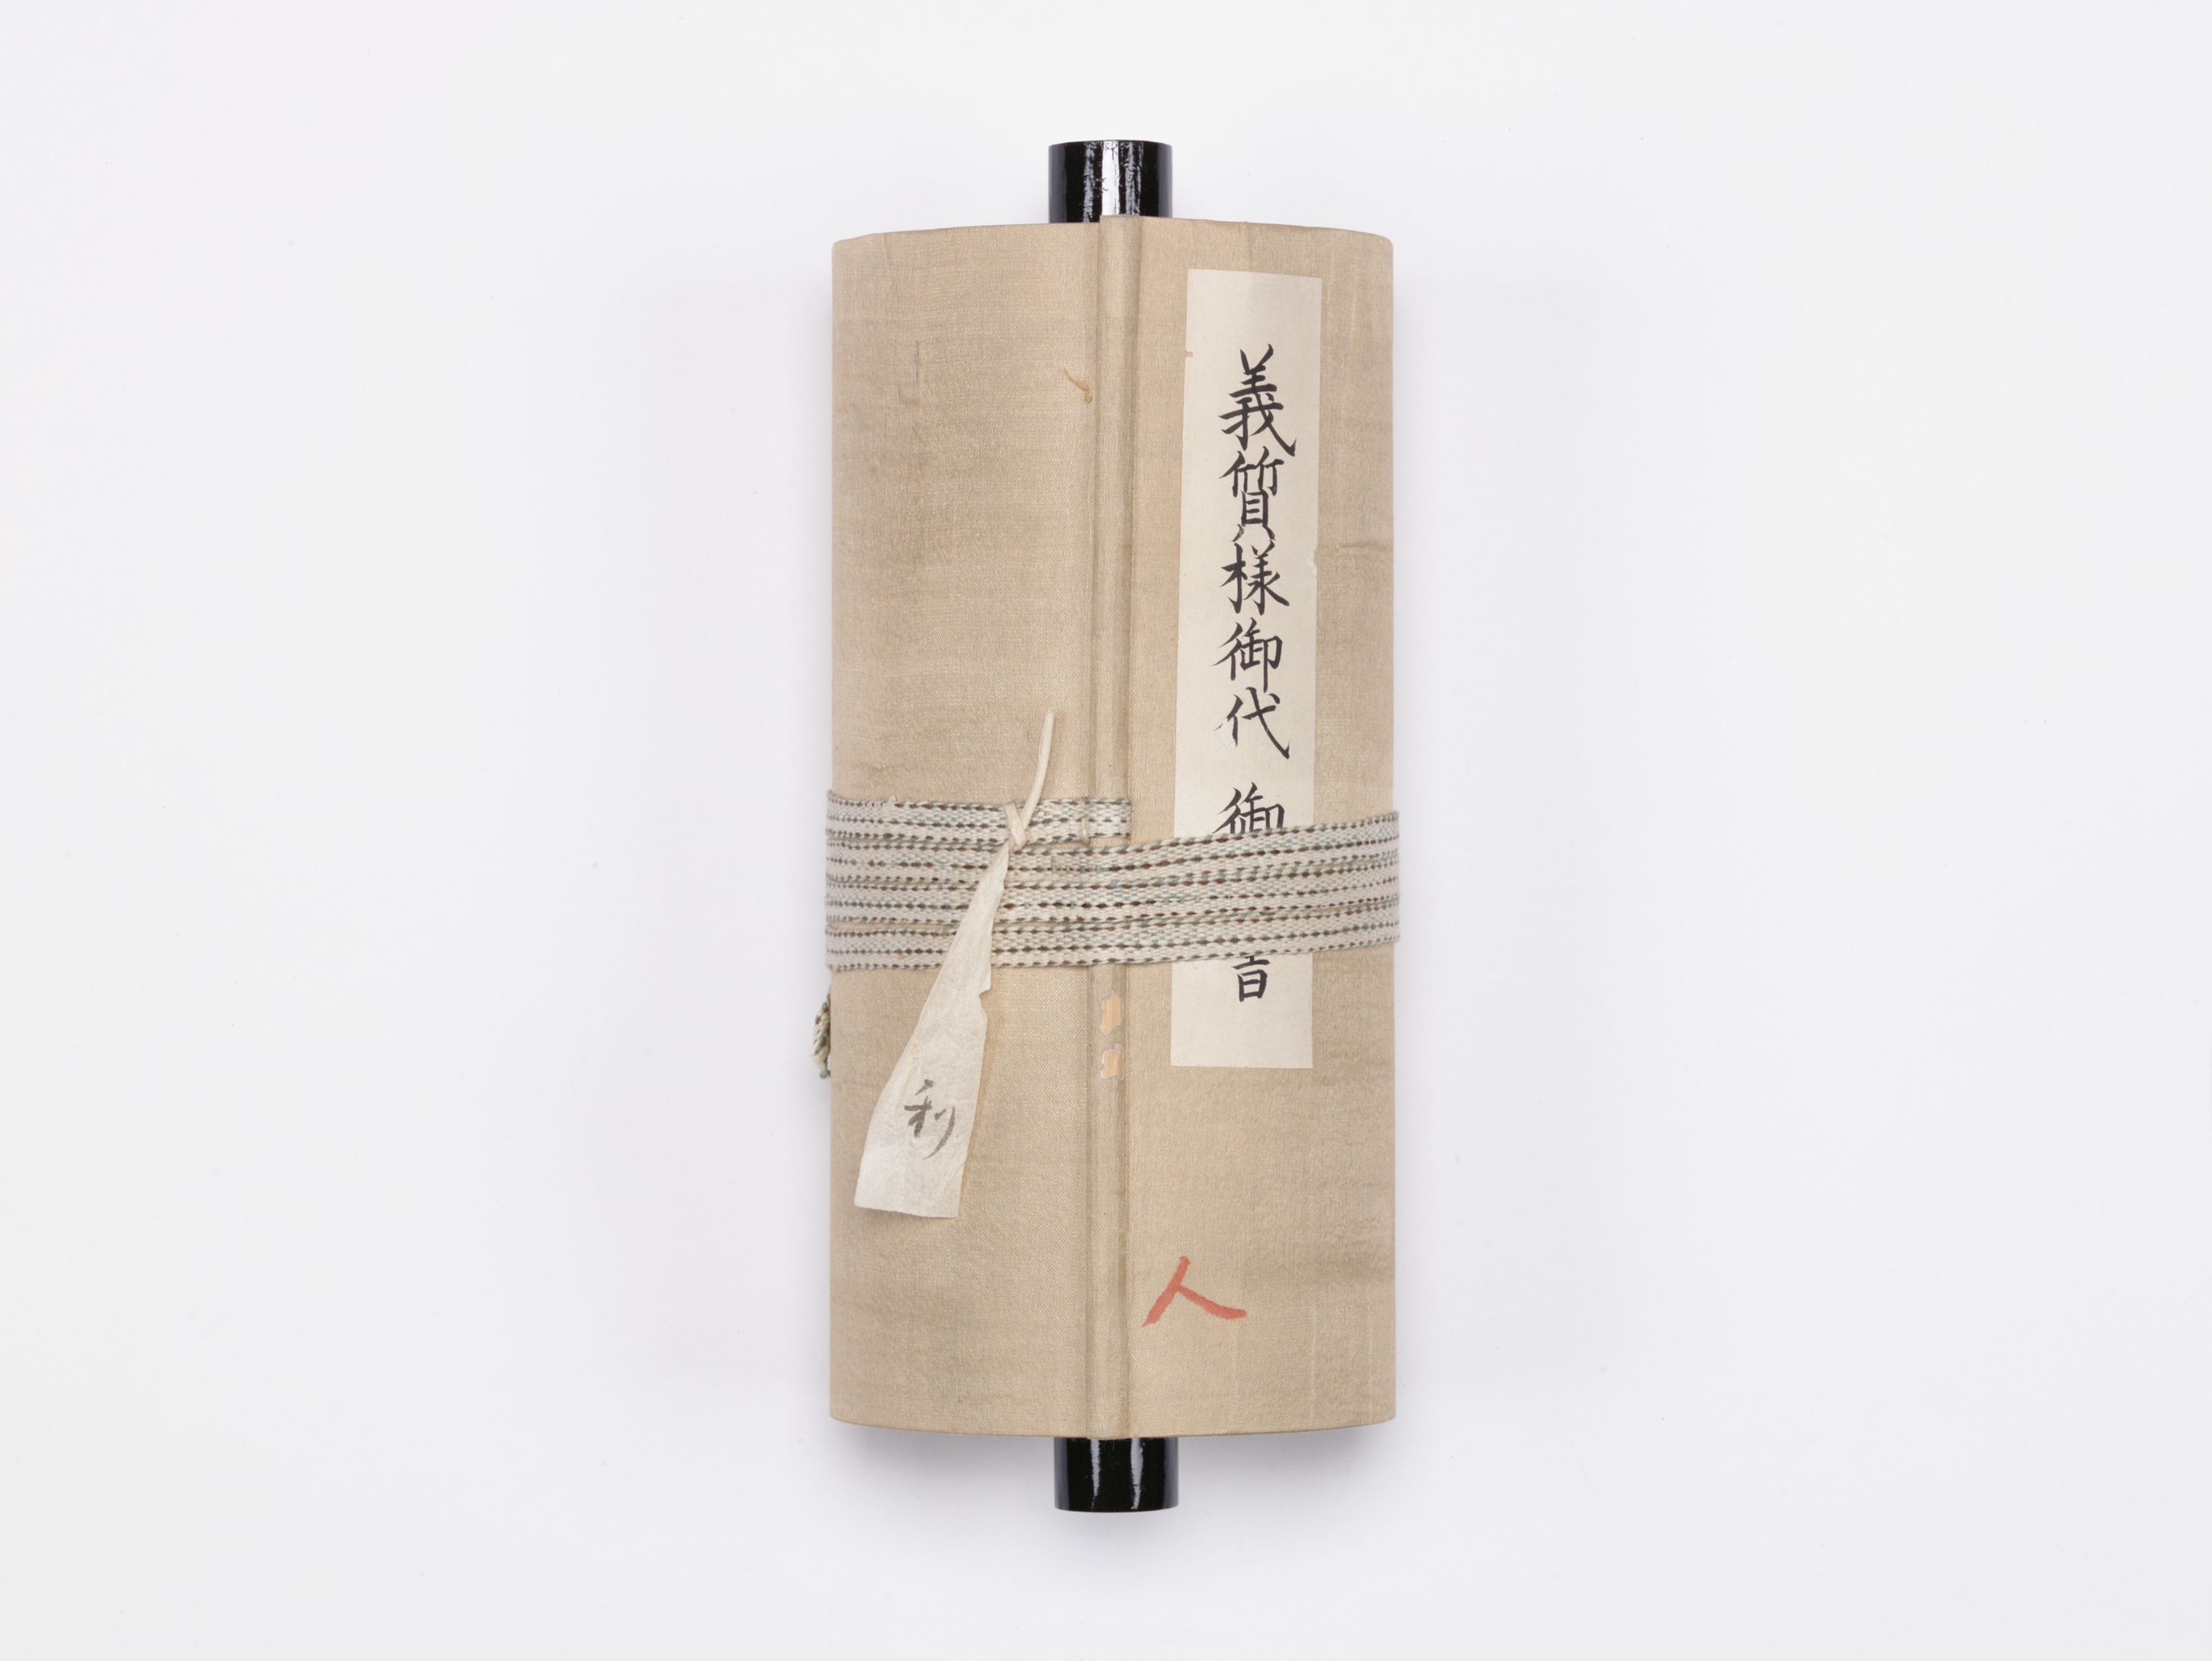 義質様御代 御
利
人